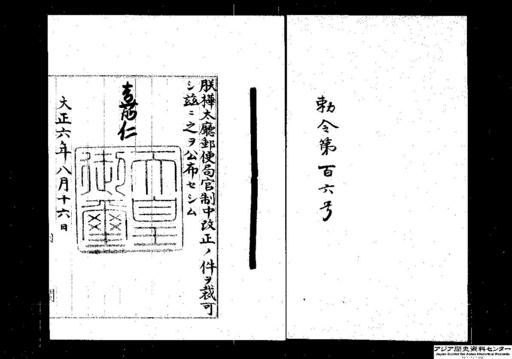 勅令第百六号
朕樺太廳郵便局官制中改正ノ件ヲ裁可
シ茲ニ之ヲ公布セシム
嘉仁
天皇
御璽
大正六年八月十六日
アジア歴史資料センター
Japan Center for Asian Historical Records